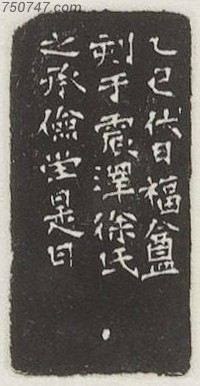 750747.com
乙巳伏日福盦
刻于震澤徐氏
之承儉堂是日